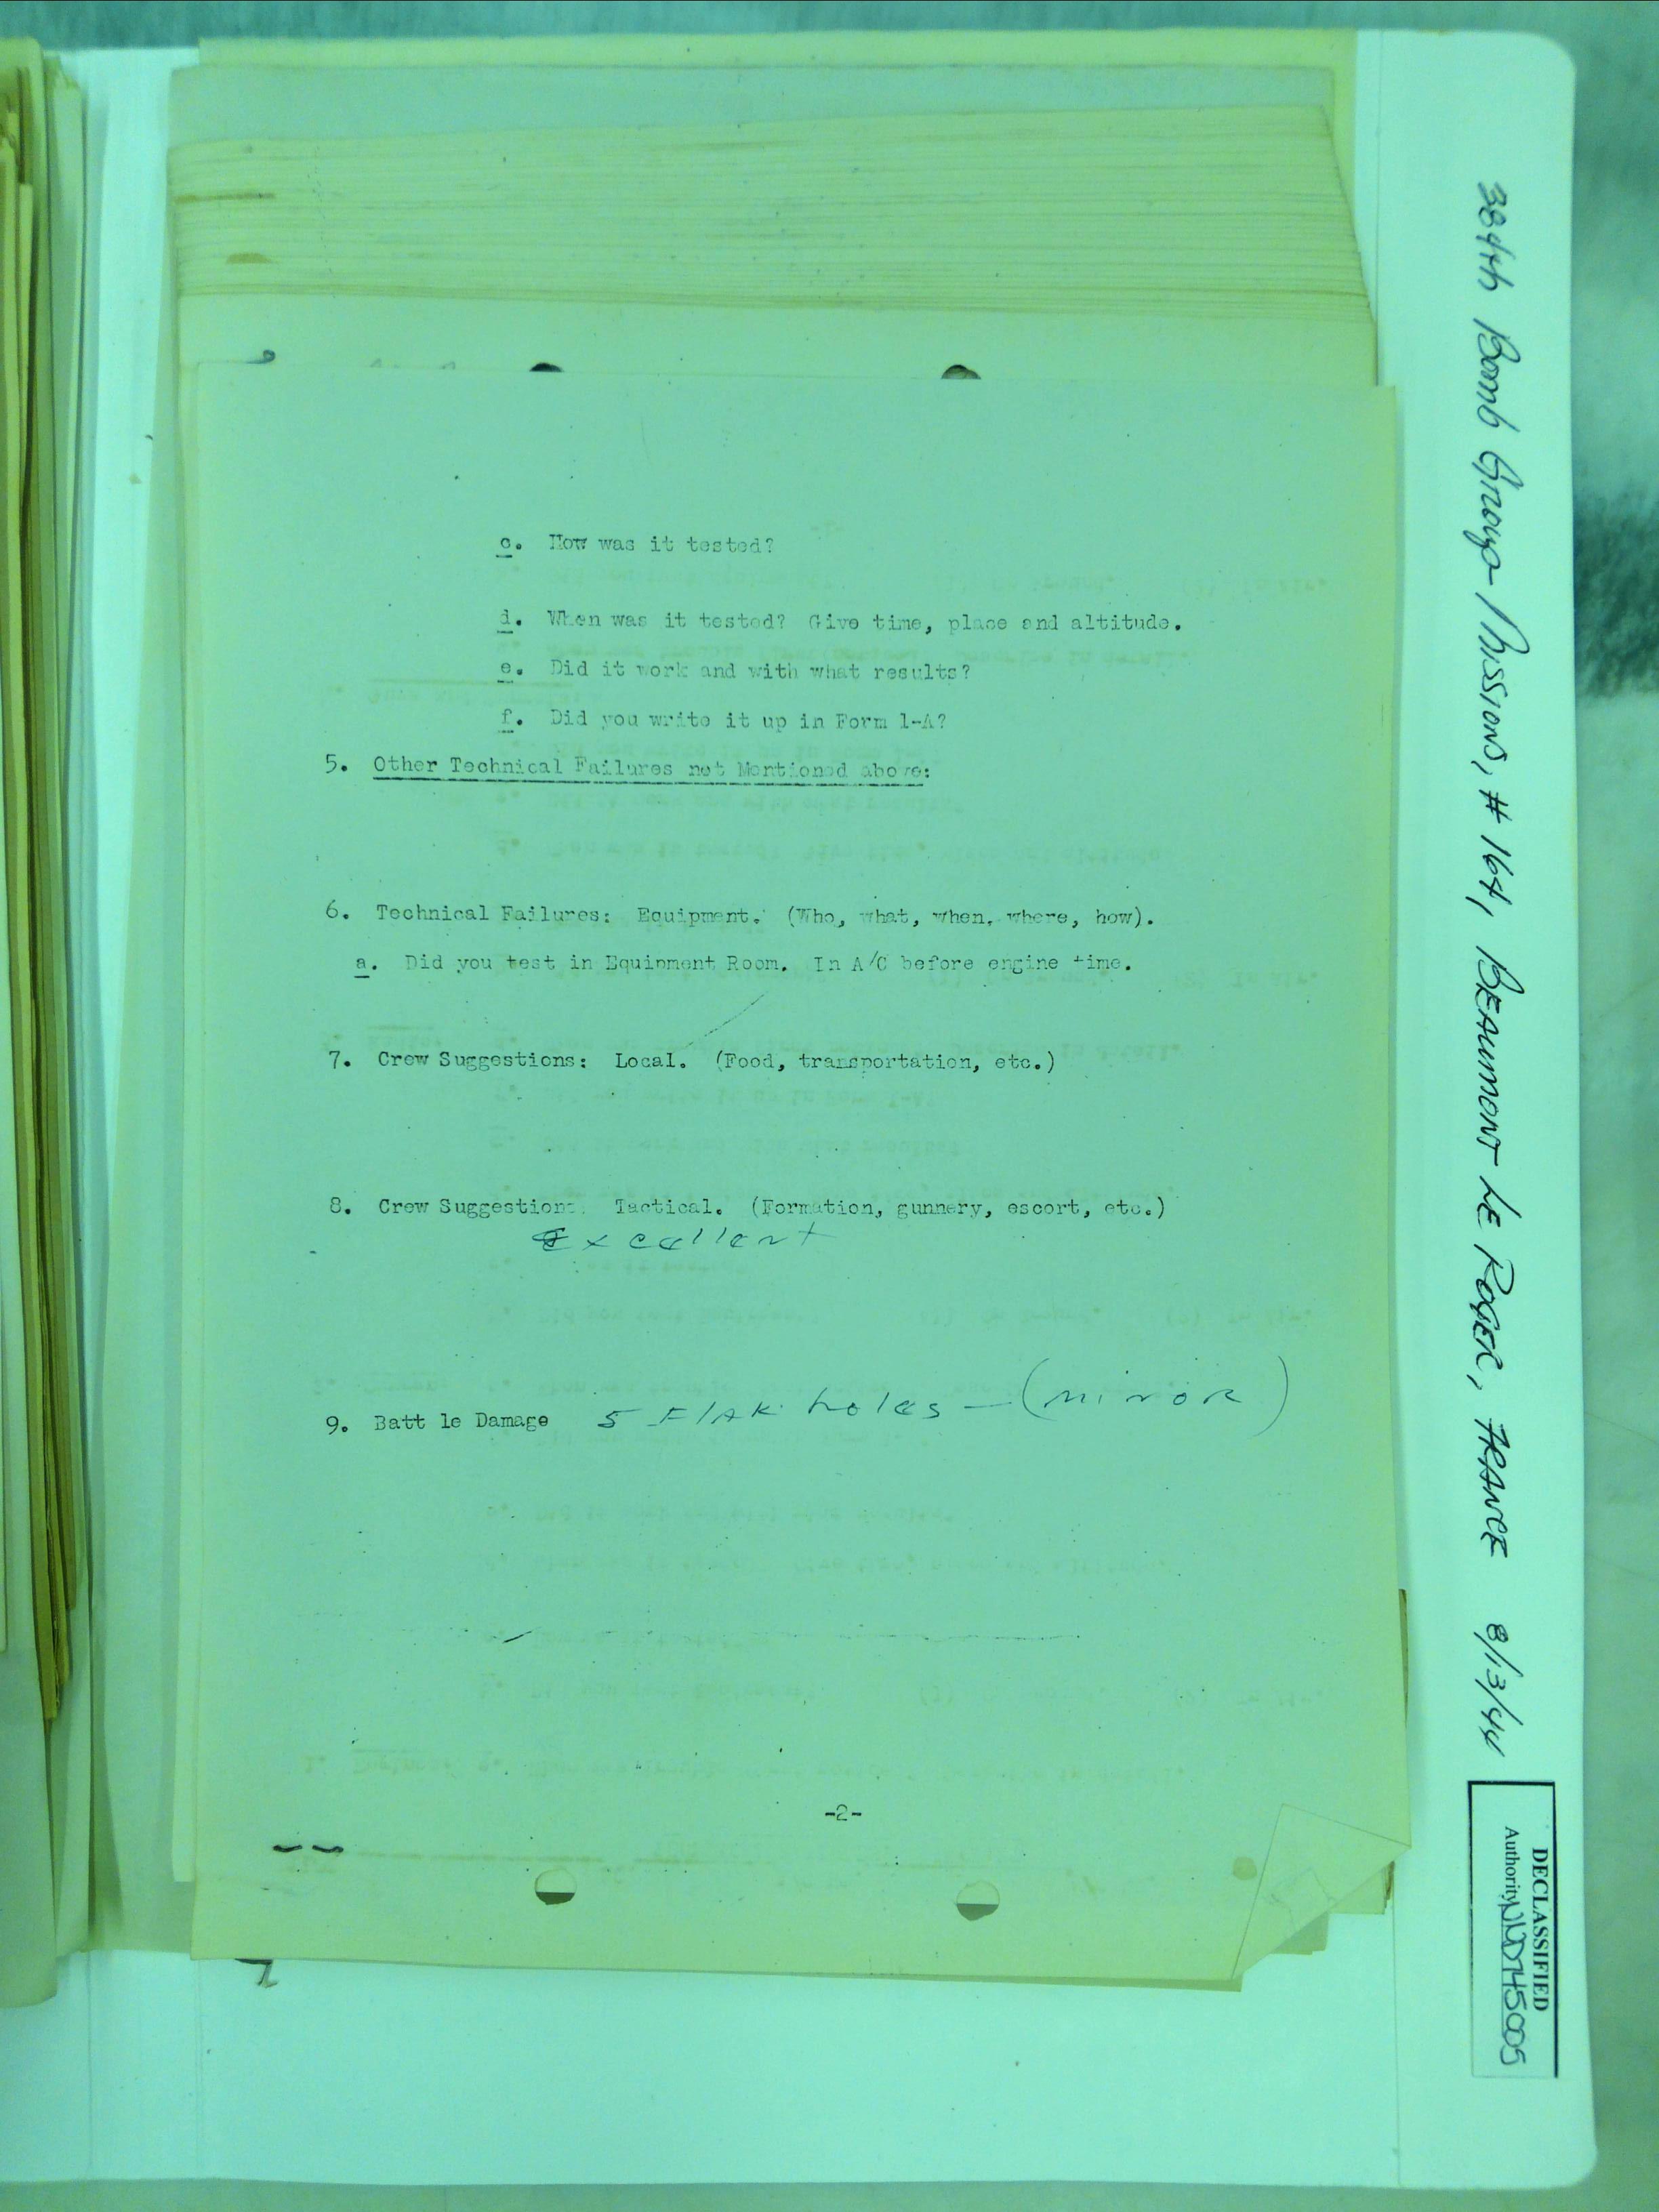 c. How was it tested?
d. When was it tested? Give time, place and altitude.
e. Did it work and with what results?
f. Did you write it up in Form 1-A?
5. Other Technical Failures not Mentioned above:
6. Technical Failures: Equipment. (Who, what, when, where, how).
a. Did you test in Equipment Room. In A/C before engine time.
7. Crew Suggestions: Local. (Food, transportation, etc.)
8. Crew Suggestions: Tactical. (Formation, gunnery, escort, etc.)
Excellent
9. Batt le Damage 5 Flak holes - (minor)
-2-
384th Bomb Group - Missions, # 164, BEAUMONT LE ROGER, FRANCE 8/13/44
DECLASSIFIED
Authority NND745005